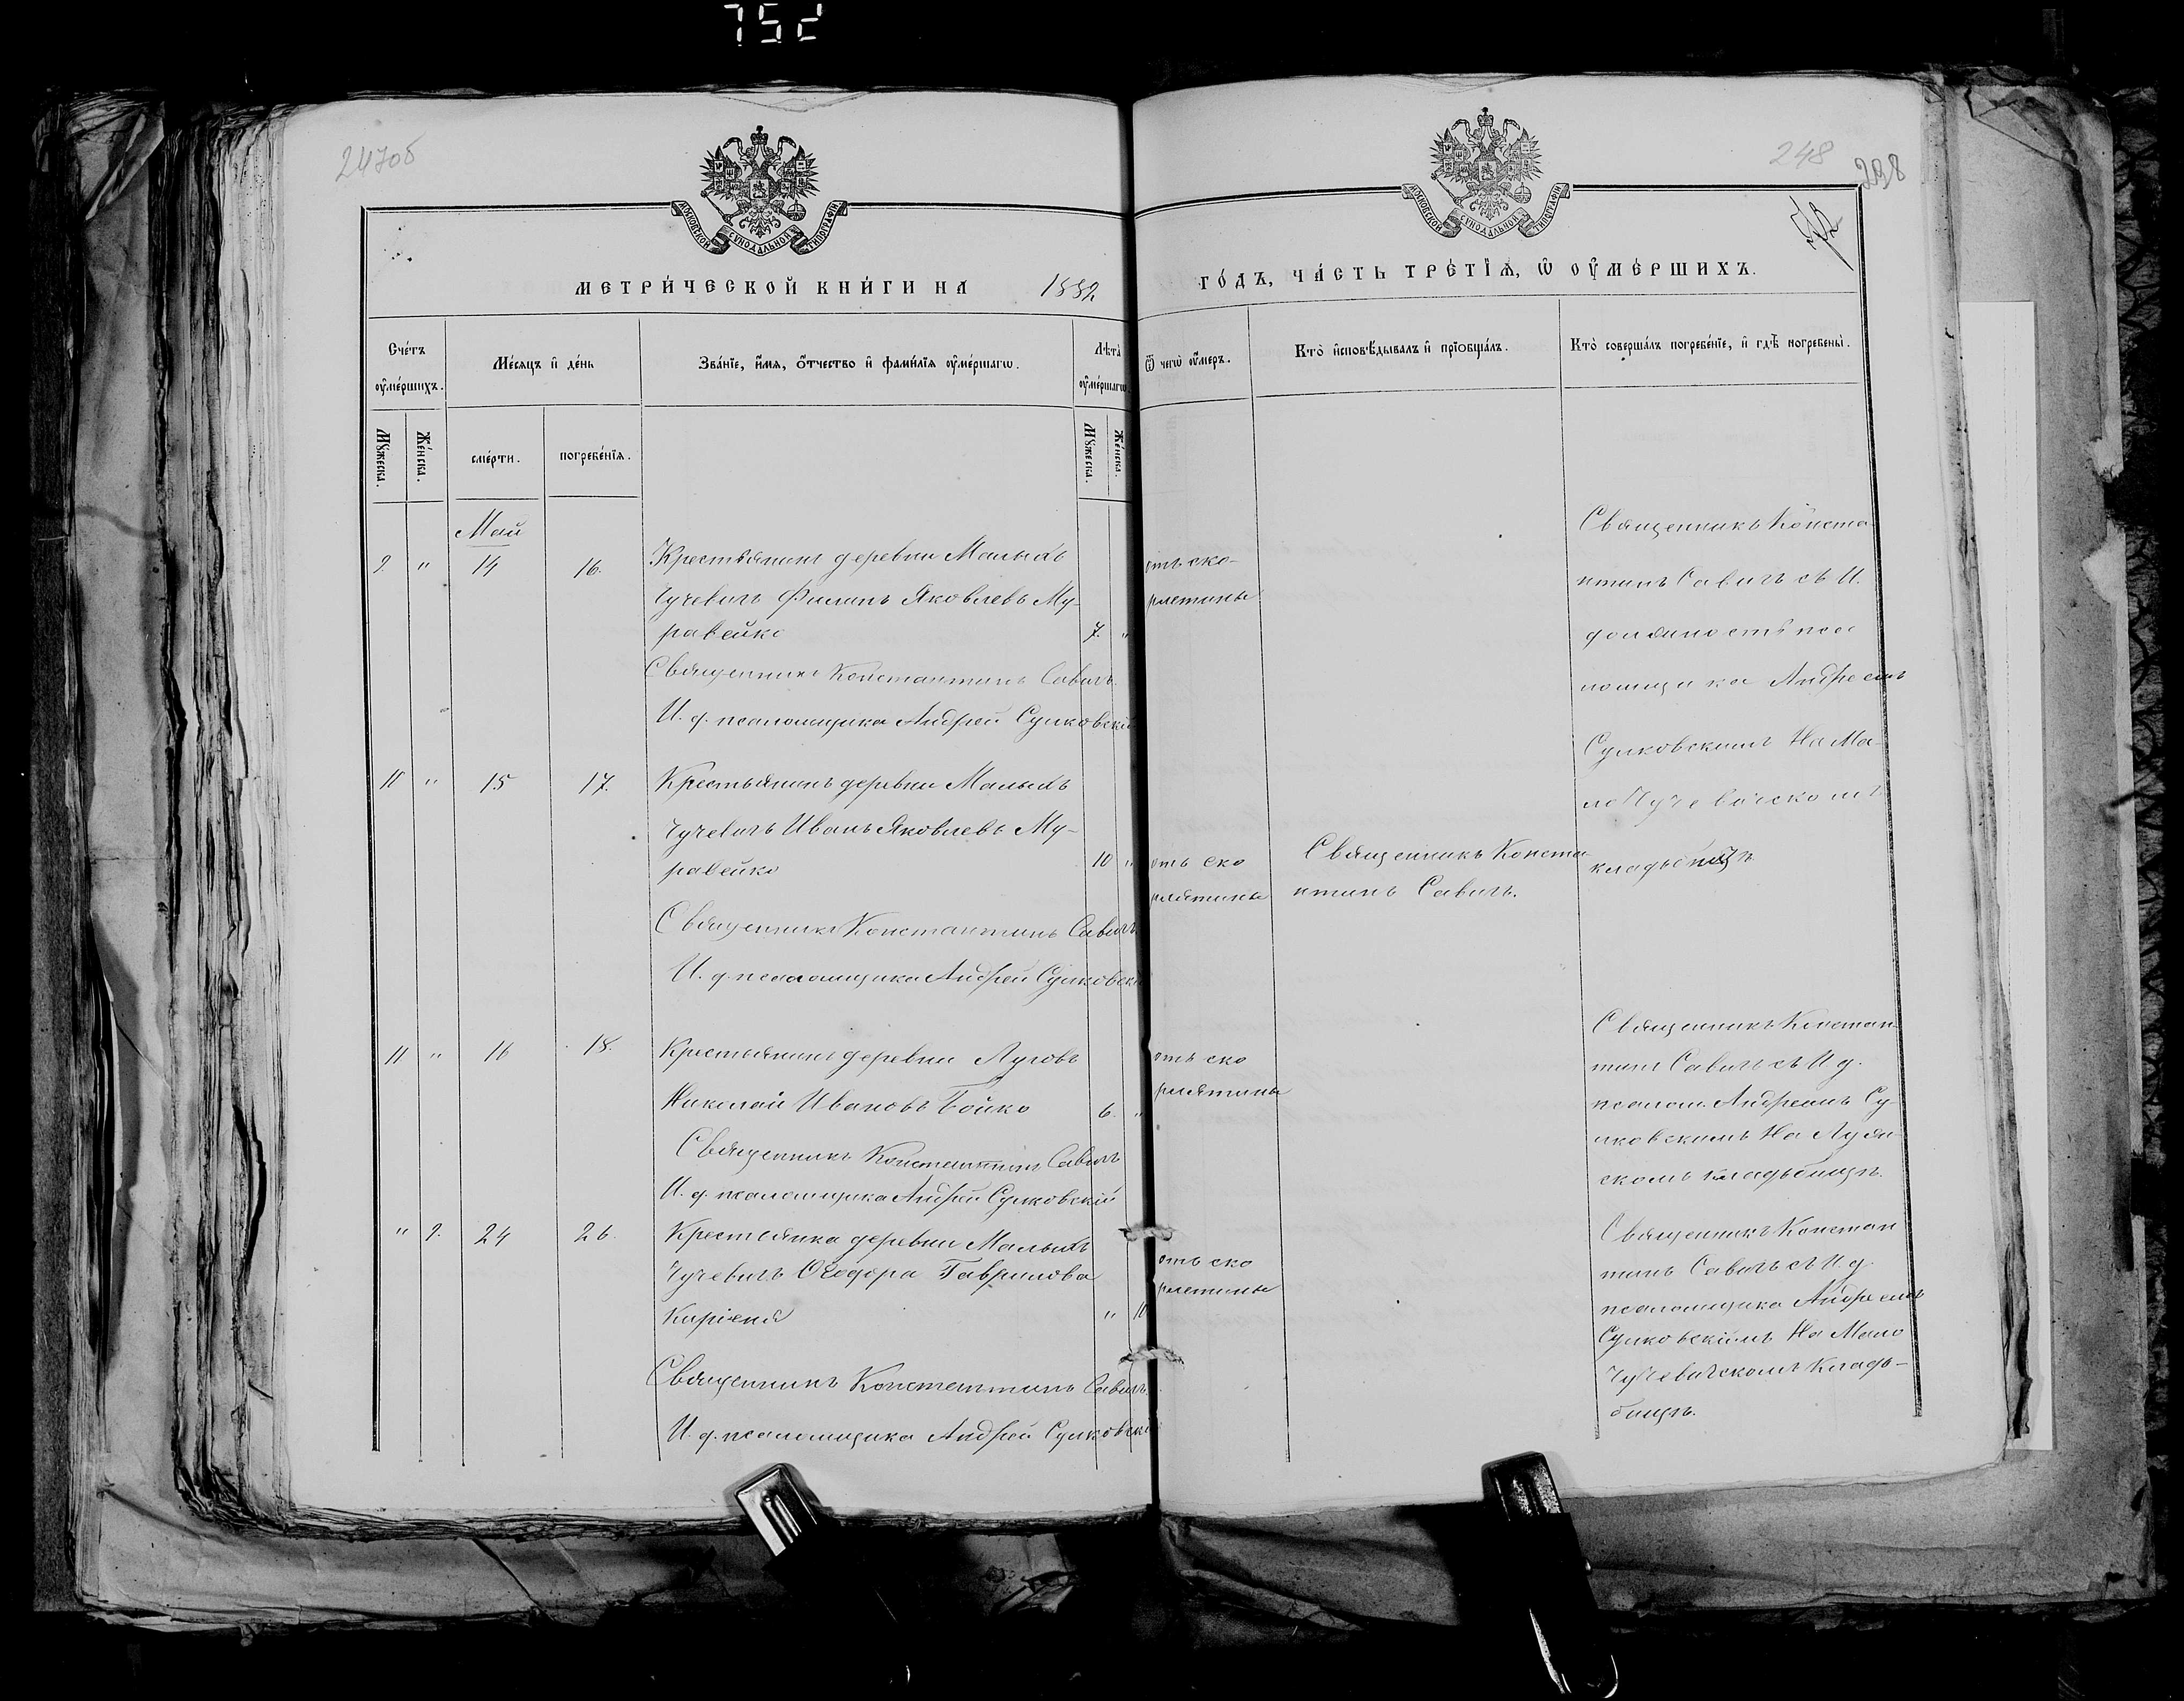 752
247об
248
МОСКОВСКОЙ СУНОДАЛЬНОЙ ТИПОГРАФІИ
МОСКОВСКОЙ СУНОДАЛЬНОЙ ТИПОГРАФІИ
МЕТРИ́ЧЕСКОЙ КНИ́ГИ НА 1882
ГО́ДЪ, ЧА́СТЬ ТРЕ́ТІѦ, Ѿ ОУ҆МЕ́РШИХЪ.
Сче́тъ оу҆ме́ршихъ.
Мѣ́сяцъ и҆ де́нь
Зва́нїе, и҆́мѧ, ѻ҆́тчество и҆ фами́лїѧ оу҆ме́ршагѡ.
Лѣ́та оу҆ме́ршагѡ
Ѿ чегѡ̀ оу҆́меръ.
Кто̀ и҆сповѣ́дывалъ и҆ прїѡбща́лъ.
Кто̀ соверша́лъ погребе́нїе, и҆ гдѣ̀ погребены̀.
Мꙋ́жеска.
Же́нска.
сме́рти.
погребе́нїѧ.
Мꙋ́жеска.
Же́нска.
Май
9. " 14 16. Крестьянинъ деревни Малыхъ
Чучевичъ Филипъ Яковлевъ Му-
равейко 7. "
Священникъ Константинъ Савичъ.
И. д. псаломщика Андрей Сулковскій
отъ ско-
рлетины
Священникъ Конста
нтинъ Савичъ съ И.
должность пса
ломщика Андреемъ
Сулковскимъ На Ма-
лоЧучевическомъ
кладьбищѣ
10 " 15 17. Крестьянинъ деревни Малыхъ
Чучевичъ Иванъ Яковлевъ Му-
равейко 10 "
Священникъ Константинъ Савичъ
И. д. псаломщика Андрей Сулковскі
отъ ско
рлятины
Священникъ Конста
нтинъ Савичъ.
11 " 16 18. Крестьянинъ деревни Луговъ
Николай Ивановъ Бойко 6. "
Священникъ Константинъ Савичъ
И. д. псаломщика Андрей Сулковскій
отъ ско
рлятины
Священникъ Констан
тинъ Савичъ съ И д.
псалом. Андреемъ Су
лковскимъ На
скомъ кладьбищѣ.
" 9. 24 26. Крестьянка деревни Малыхъ
Чучевичъ Ѳеодора Гаврилова
" 10
Священникъ Константинъ Савичъ.
И. д. псаломщика Андрей Сулковскі
отъ ско
рлетины
Священникъ Констан
тинъ Савичъ съ И. д.
псаломщика Андреемъ
Сулковскимъ На Мало
Чучевичскомъ Кладь-
бищѣ.